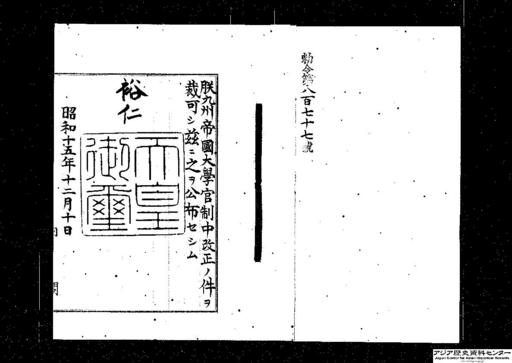 勅令第八百七十七號
朕九州帝國大學官制中改正ノ件ヲ
裁可シ茲ニ之ヲ公布セシム
裕仁
天皇御璽
昭和十五年十二月十日
アジア歴史資料センター
Japan Center for Asian Historical Records